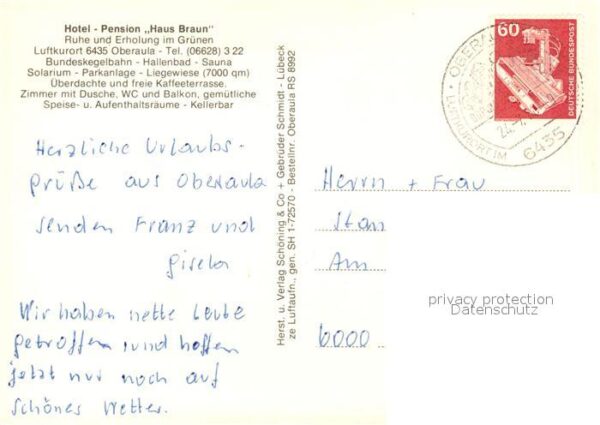 Hotel - Pension „Haus Braun"
Ruhe und Erholung im Grünen
Luftkurort 6435 Oberaula - Tel. (06628) 3 22
Bundeskegelbahn - Hallenbad - Sauna
Solarium - Parkanlage - Liegewiese (7000 qm)
Überdachte und freie Kaffeeterrasse.
Zimmer mit Dusche, WC und Balkon, gemütliche
Speise- u. Aufenthaltsräume - Kellerbar
Herzliche Urlaubs-
grüße aus Oberaula
senden Franz und
Gisela
Wir haben nette Leute
getroffen, und hoffen
jetzt nur noch auf
schönes Wetter.
Herst. u. Verlag Schöning & Co + Gebrüder Schmidt - Lübeck
ze Luftaufn., gen. SH 1-72570 - Bestellnr. Oberaula RS 8992
60
DEUTSCHE BUNDESPOST
LUFTKURORT IM
6435
Herrn + Frau
Stan
Am
6000
privacy protection
Datenschutz